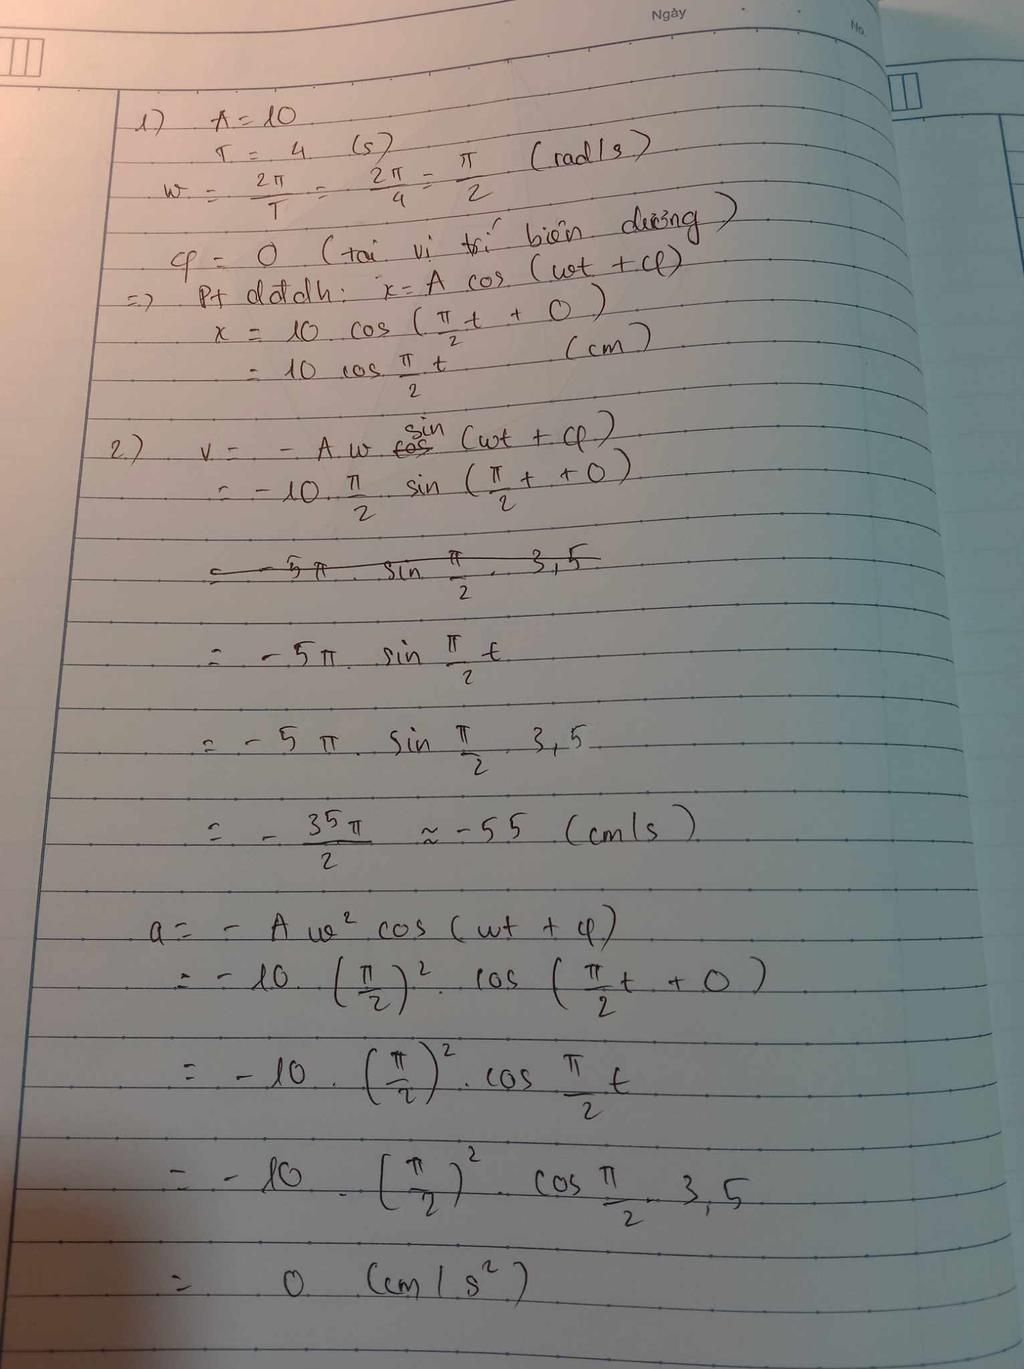 Ngày
No.
1) A = 10
T = 4 (s)
w = 2π/T = 2π/4 = π/2 (rad/s)
φ = 0 (tại vị trí biên dương)
=> Pt dđđh: x = A cos (wt + φ)
x = 10 cos (π/2 t + 0)
= 10 cos π/2 t (cm)
2) v = - A w cos sin (wt + φ)
= - 10 . π/2 sin (π/2 t + 0)
= - 5π . sin π/2 . 3,5
= - 5π . sin π/2 t
= - 5 π . sin π/2 . 3,5
= - 35π/2 ≈ -55 (cm/s)
a = - A w² cos (wt + φ)
= - 10 . (π/2)² . cos (π/2 t + 0)
= - 10 . (π/2)² . cos π/2 t
= - 10 . (π/2)² . cos π/2 . 3,5
= 0 (cm/s²)